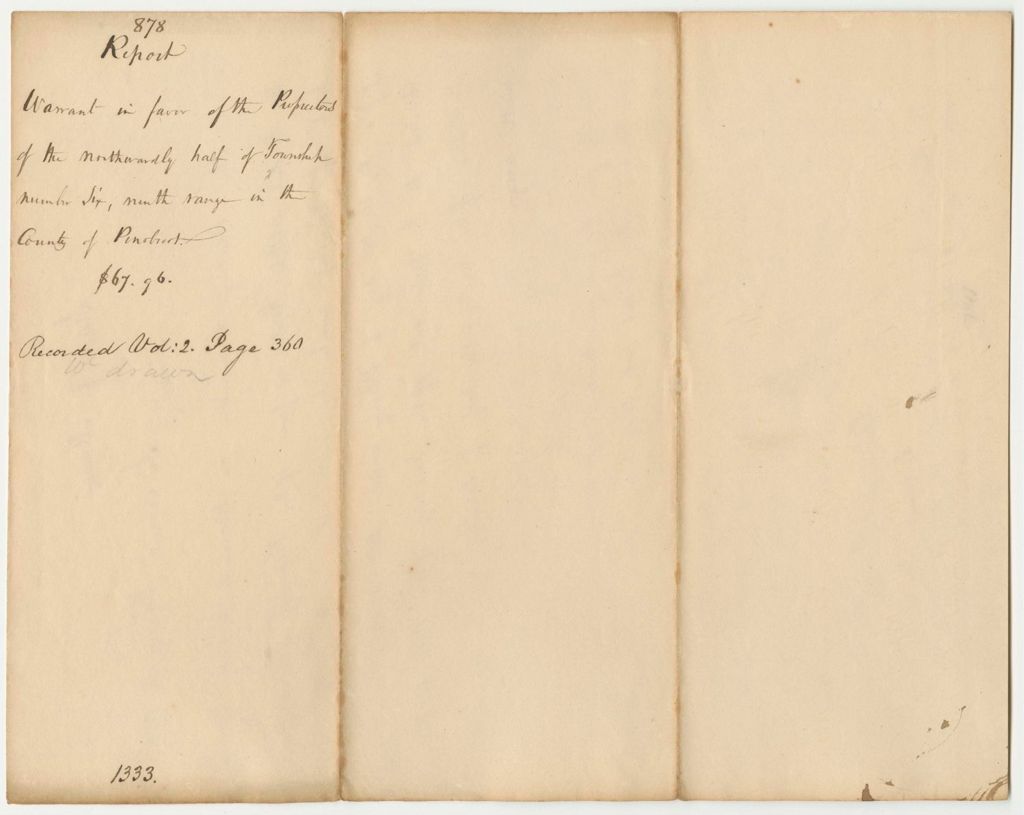 878
Report
Warrant in favor of the Proprietors
of the northwardly half of Township
number Six, ninth range in the
County of Penobscot.
$67.96.
Recorded Vol: 2. Page 360
Wt drawn
1333.